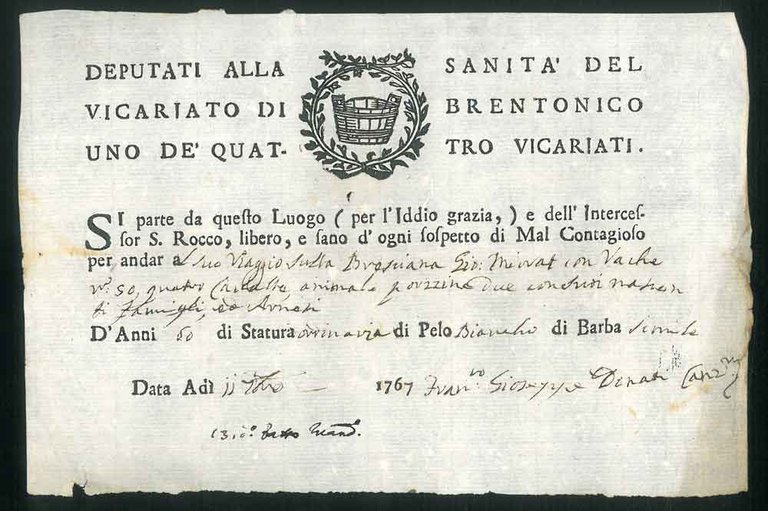 DEPUTATI ALLA SANITA' DEL
VICARIATO DI BRENTONICO
UNO DE' QUAT- TRO VICARIATI.
SI parte da queſto Luogo ( per l'Iddio grazia, ) e dell' Interceſ-
ſor S. Rocco, libero, e ſano d' ogni ſoſpetto di Mal Contagioſo
per andar a suo Viaggio sulla Bresciana Gio: con Vache
50, quatro animale due
di Famigli, ed Arnesi
D' Anni 60 di Statura ordinaria di Pelo Biancho di Barba simile
Data Adì 1767 Gioseppe Donati